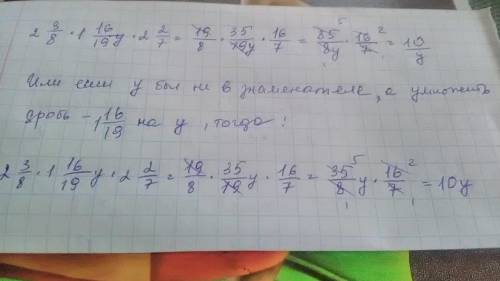 2 3/8 · 1 16/19y · 2 2/7 = 19/8 · 35/19y · 16/7 = 35/8y · 16/7 = 10/y
5 2
1 1
Или если у был не в знаменателе, а умножить
дробь - 1 16/19 на у, тогда:
2 3/8 · 1 16/19 y · 2 2/7 = 19/8 · 35/19 y · 16/7 = 35/8 y · 16/7 = 10y
5 2
1 1